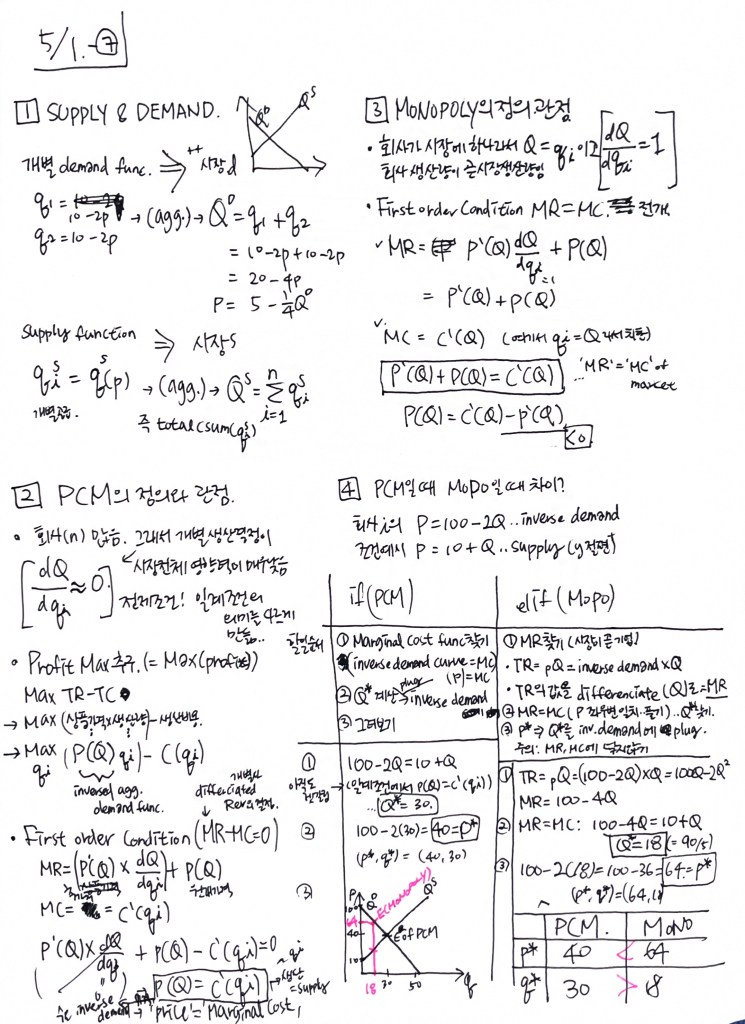 5/1.-⑦
1 SUPPLY & DEMAND.
Q^D Q^S
개별 demand func. ⇒ 시장d
q1 = 10-2p
q2 = 10-2p
→ (agg.) → Q^D = q1 + q2
= 10-2p+10-2p
= 20-4p
P = 5 - 1/4 Q^D
Supply function ⇒ 시장s
q_i^s = q^s(p) → (agg.) → Q^S = Σ_{i=1}^n q_i^s
개별공급. 즉 total (sum(q_i^s))
2 PCM의 정의와 관점.
• 회사(n) 많음. 그래서 개별 생산결정이
[dQ/dq_i ≈ 0.] 시장전체 영향력이 매우낮음
전제조건! 일계조건의
의미를 다르게
만듦..
• Profit Max추구. (= Max(profits))
Max TR-TC
→ Max (상품가격×생산량) - 생산비용.
→ Max_{q_i} (P(Q) q_i) - C(q_i)
inversed agg.
demand func.
• First order Condition (MR-MC=0)
MR = (P'(Q) × dQ/dq_i) + P(Q)
MC = C'(q_i)
P'(Q) × dQ/dq_i + P(Q) - C'(q_i) = 0
P(Q) = C'(q_i)
생산
=supply
즉 inverse
demand
'price' = 'Marginal Cost'
3 MONOPOLY의 정의 관점
• 회사가 시장에 하나라서 Q = q_i 이고 [dQ/dq_i = 1]
회사 생산량이 곧 시장생산량임
• First order Condition MR = MC. 전개.
✓ MR = P'(Q) dQ/dq_i + P(Q)
=1
= P'(Q) + P(Q)
✓ MC = C'(Q) (여기서 q_i = Q 라서 치환)
P'(Q) + P(Q) = C'(Q) ... 'MR' = 'MC' of
market
P(Q) = C'(Q) - P'(Q)
<0
4 PCM일때 MoPo일때 차이?
회사i의 P = 100-2Q .. inverse demand
조건에서 P = 10+Q .. supply
if (PCM)
① Marginal cost func찾기
(inverse demand curve = MC)
(P) = MC
② Q* 계산 → inverse demand
plug
③ 그려보기
elif (MoPo)
① MR찾기
• TR = pQ = inverse demand × Q
• TR의 값을 differentiate (Q)로 = MR
② MR = MC
③ P* → Q*을 inv. demand에 plug.
주의: MR, MC에
①
100-2Q = 10+Q
(일계조건에서 P(Q) = C'(q_i))
... Q* = 30.
②
100-2(30) = 40 = P*
(p*, q*) = (40, 30)
③
P 100 64 40 10
Q^D Q^S
E(MONOPOLY)
E of PCM
18 30 50 q
① TR = pQ = (100-2Q)×Q = 100Q-2Q²
MR = 100-4Q
② MR = MC: 100-4Q = 10+Q
Q* = 18 (= 90/5)
③ 100-2(18) = 100-36 = 64 = P*
(p*, q*) = (64, 18)
PCM. MONO
P* 40 < 64
q* 30 > 18